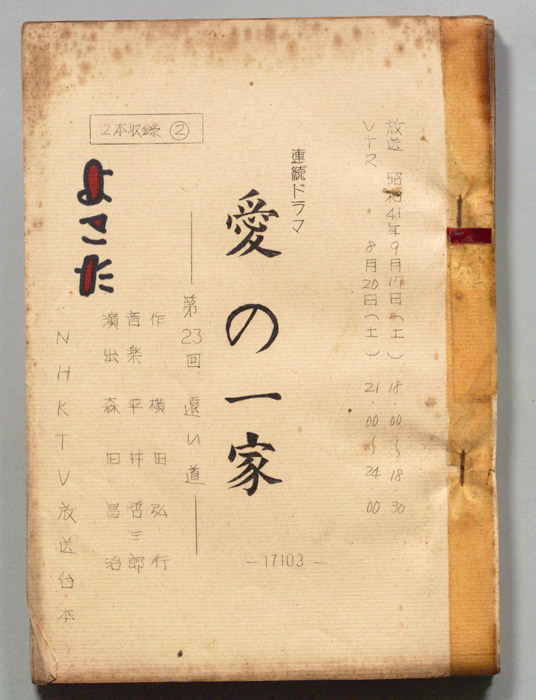 放送 昭和41年9月17日(土) 18.00〜18 30
VTR 〃 8月20日(土) 21.00〜24 00
連続ドラマ
愛の一家
第23回 遠い道
作 横田弘行
音楽 平井哲三郎
演出 森田昌治
2本収録 ②
よこた
NHKTV放送台本
—17103—